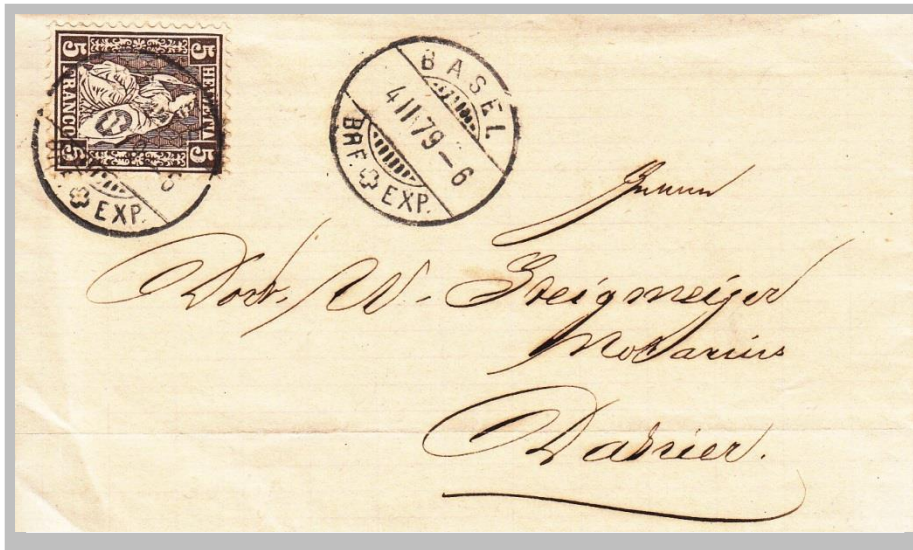 5 HELVETIA 5
5 FRANCO 5
EXP.
BASEL
4 II 79 – 6
BRF. EXP.
Herrn
Doct. W. Steigmeiger
Notarius
Dahier.